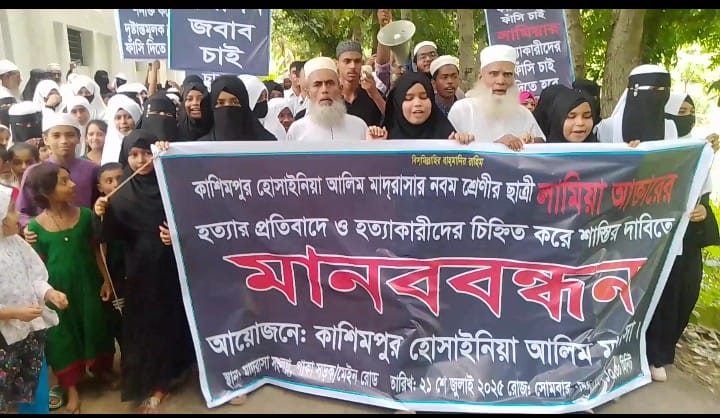 দৃষ্টান্তমূলক
ফাঁসি দিতে
জবাব
চাই
চাই
ফাঁসি চাই
লামিয়ার
হত্যাকারীদের
ফাঁসি চাই
দিতে হবে
বিসমিল্লাহির রাহমানির রাহিম
কাশিমপুর হোসাইনিয়া আলিম মাদ্রাসার নবম শ্রেণীর ছাত্রী লামিয়া আক্তারের
হত্যার প্রতিবাদে ও হত্যাকারীদের চিহ্নিত করে শাস্তির দাবিতে
মানববন্ধন
আয়োজনে: কাশিমপুর হোসাইনিয়া আলিম
স্থান: মাদরাসা সংলগ্ন, পাকা সড়ক/মেইন রোড তারিখ: ২১ শে জুলাই ২০২৫ রোজ: সোমবার